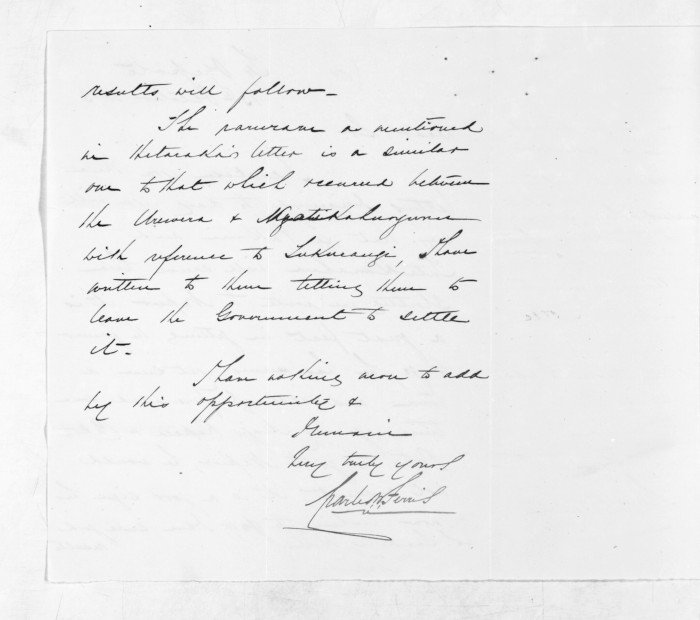 results will follow—
The raruraru as mentioned
in Hetaraka's letter is a similar
one to that which occurred between
the Urewera &
with reference to Tukurangi, I have
written to them telling them to
leave the Government to settle
it—
I have nothing more to add
by this opportunity &
I remain
Very truly yours